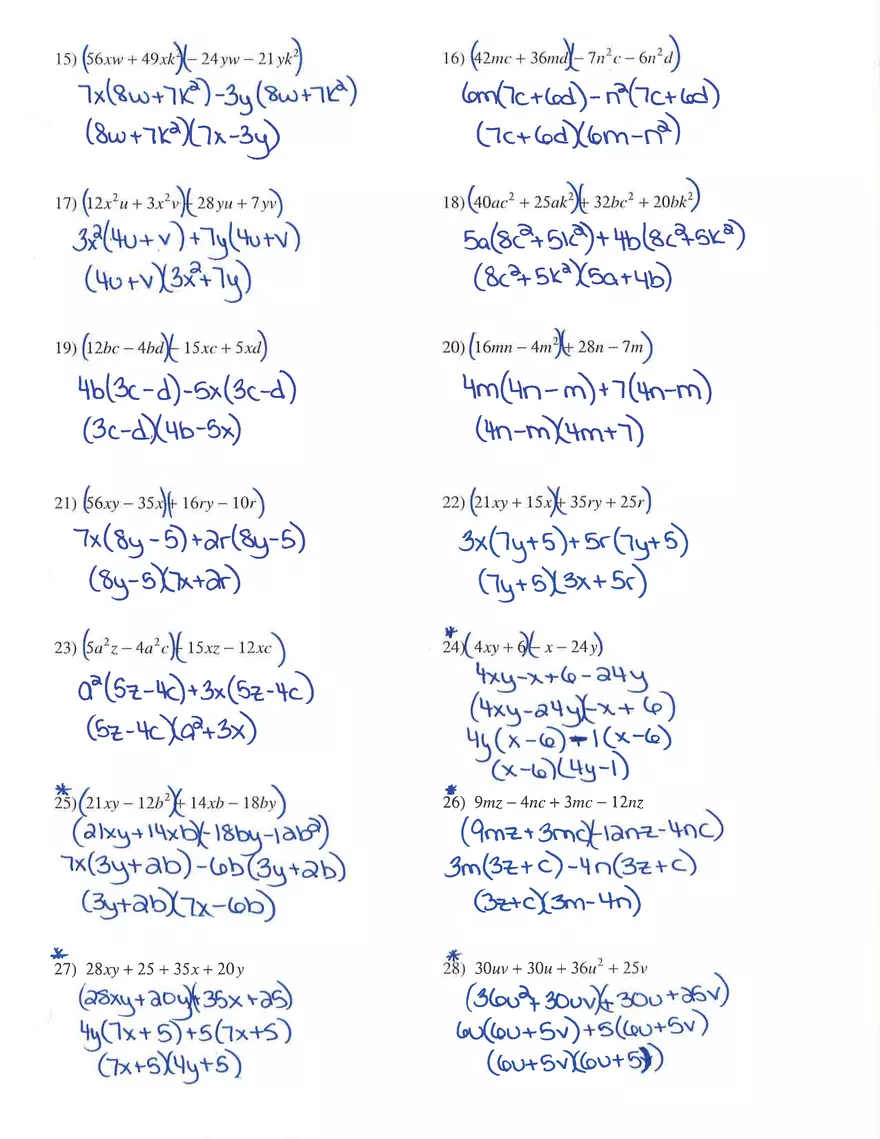 15) (56xw + 49xk²)(− 24yw − 21yk²)
7x(8w+7k²)-3y(8w+7k²)
(8w+7k²)(7x-3y)
16) (42mc + 36md)(− 7n²c − 6n²d)
6m(7c+6d)-n²(7c+6d)
(7c+6d)(6m-n²)
17) (12x²u + 3x²v)(+ 28yu + 7yv)
3x²(4u+v)+7y(4u+v)
(4u+v)(3x²+7y)
18) (40ac² + 25ak²)(+ 32bc² + 20bk²)
5a(8c²+5k²)+4b(8c²+5k²)
(8c²+5k²)(5a+4b)
19) (12bc − 4bd)(− 15xc + 5xd)
4b(3c-d)-5x(3c-d)
(3c-d)(4b-5x)
20) (16mn − 4m²)(+ 28n − 7m)
4m(4n-m)+7(4n-m)
(4n-m)(4m+7)
21) (56xy − 35x)(+ 16ry − 10r)
7x(8y-5)+2r(8y-5)
(8y-5)(7x+2r)
22) (21xy + 15x)(+ 35ry + 25r)
3x(7y+5)+5r(7y+5)
(7y+5)(3x+5r)
23) (5a²z − 4a²c)(+ 15xz − 12xc)
a²(5z-4c)+3x(5z-4c)
(5z-4c)(a²+3x)
*
24) (4xy + 6)(− x − 24y)
4xy-x+6-24y
(4xy-24y)(-x+6)
4y(x-6)-1(x-6)
(x-6)(4y-1)
*
25) (21xy − 12b²)(+ 14xb − 18by)
(21xy+14xb)(-18by-12b²)
7x(3y+2b)-6b(3y+2b)
(3y+2b)(7x-6b)
*
26) 9mz − 4nc + 3mc − 12nz
(9mz+3mc)(-12nz-4nc)
3m(3z+c)-4n(3z+c)
(3z+c)(3m-4n)
*
27) 28xy + 25 + 35x + 20y
(28xy+20y)(+35x+25)
4y(7x+5)+5(7x+5)
(7x+5)(4y+5)
*
28) 30uv + 30u + 36u² + 25v
(36u²+30uv)(+30u+25v)
6u(6u+5v)+5(6u+5v)
(6u+5v)(6u+5)